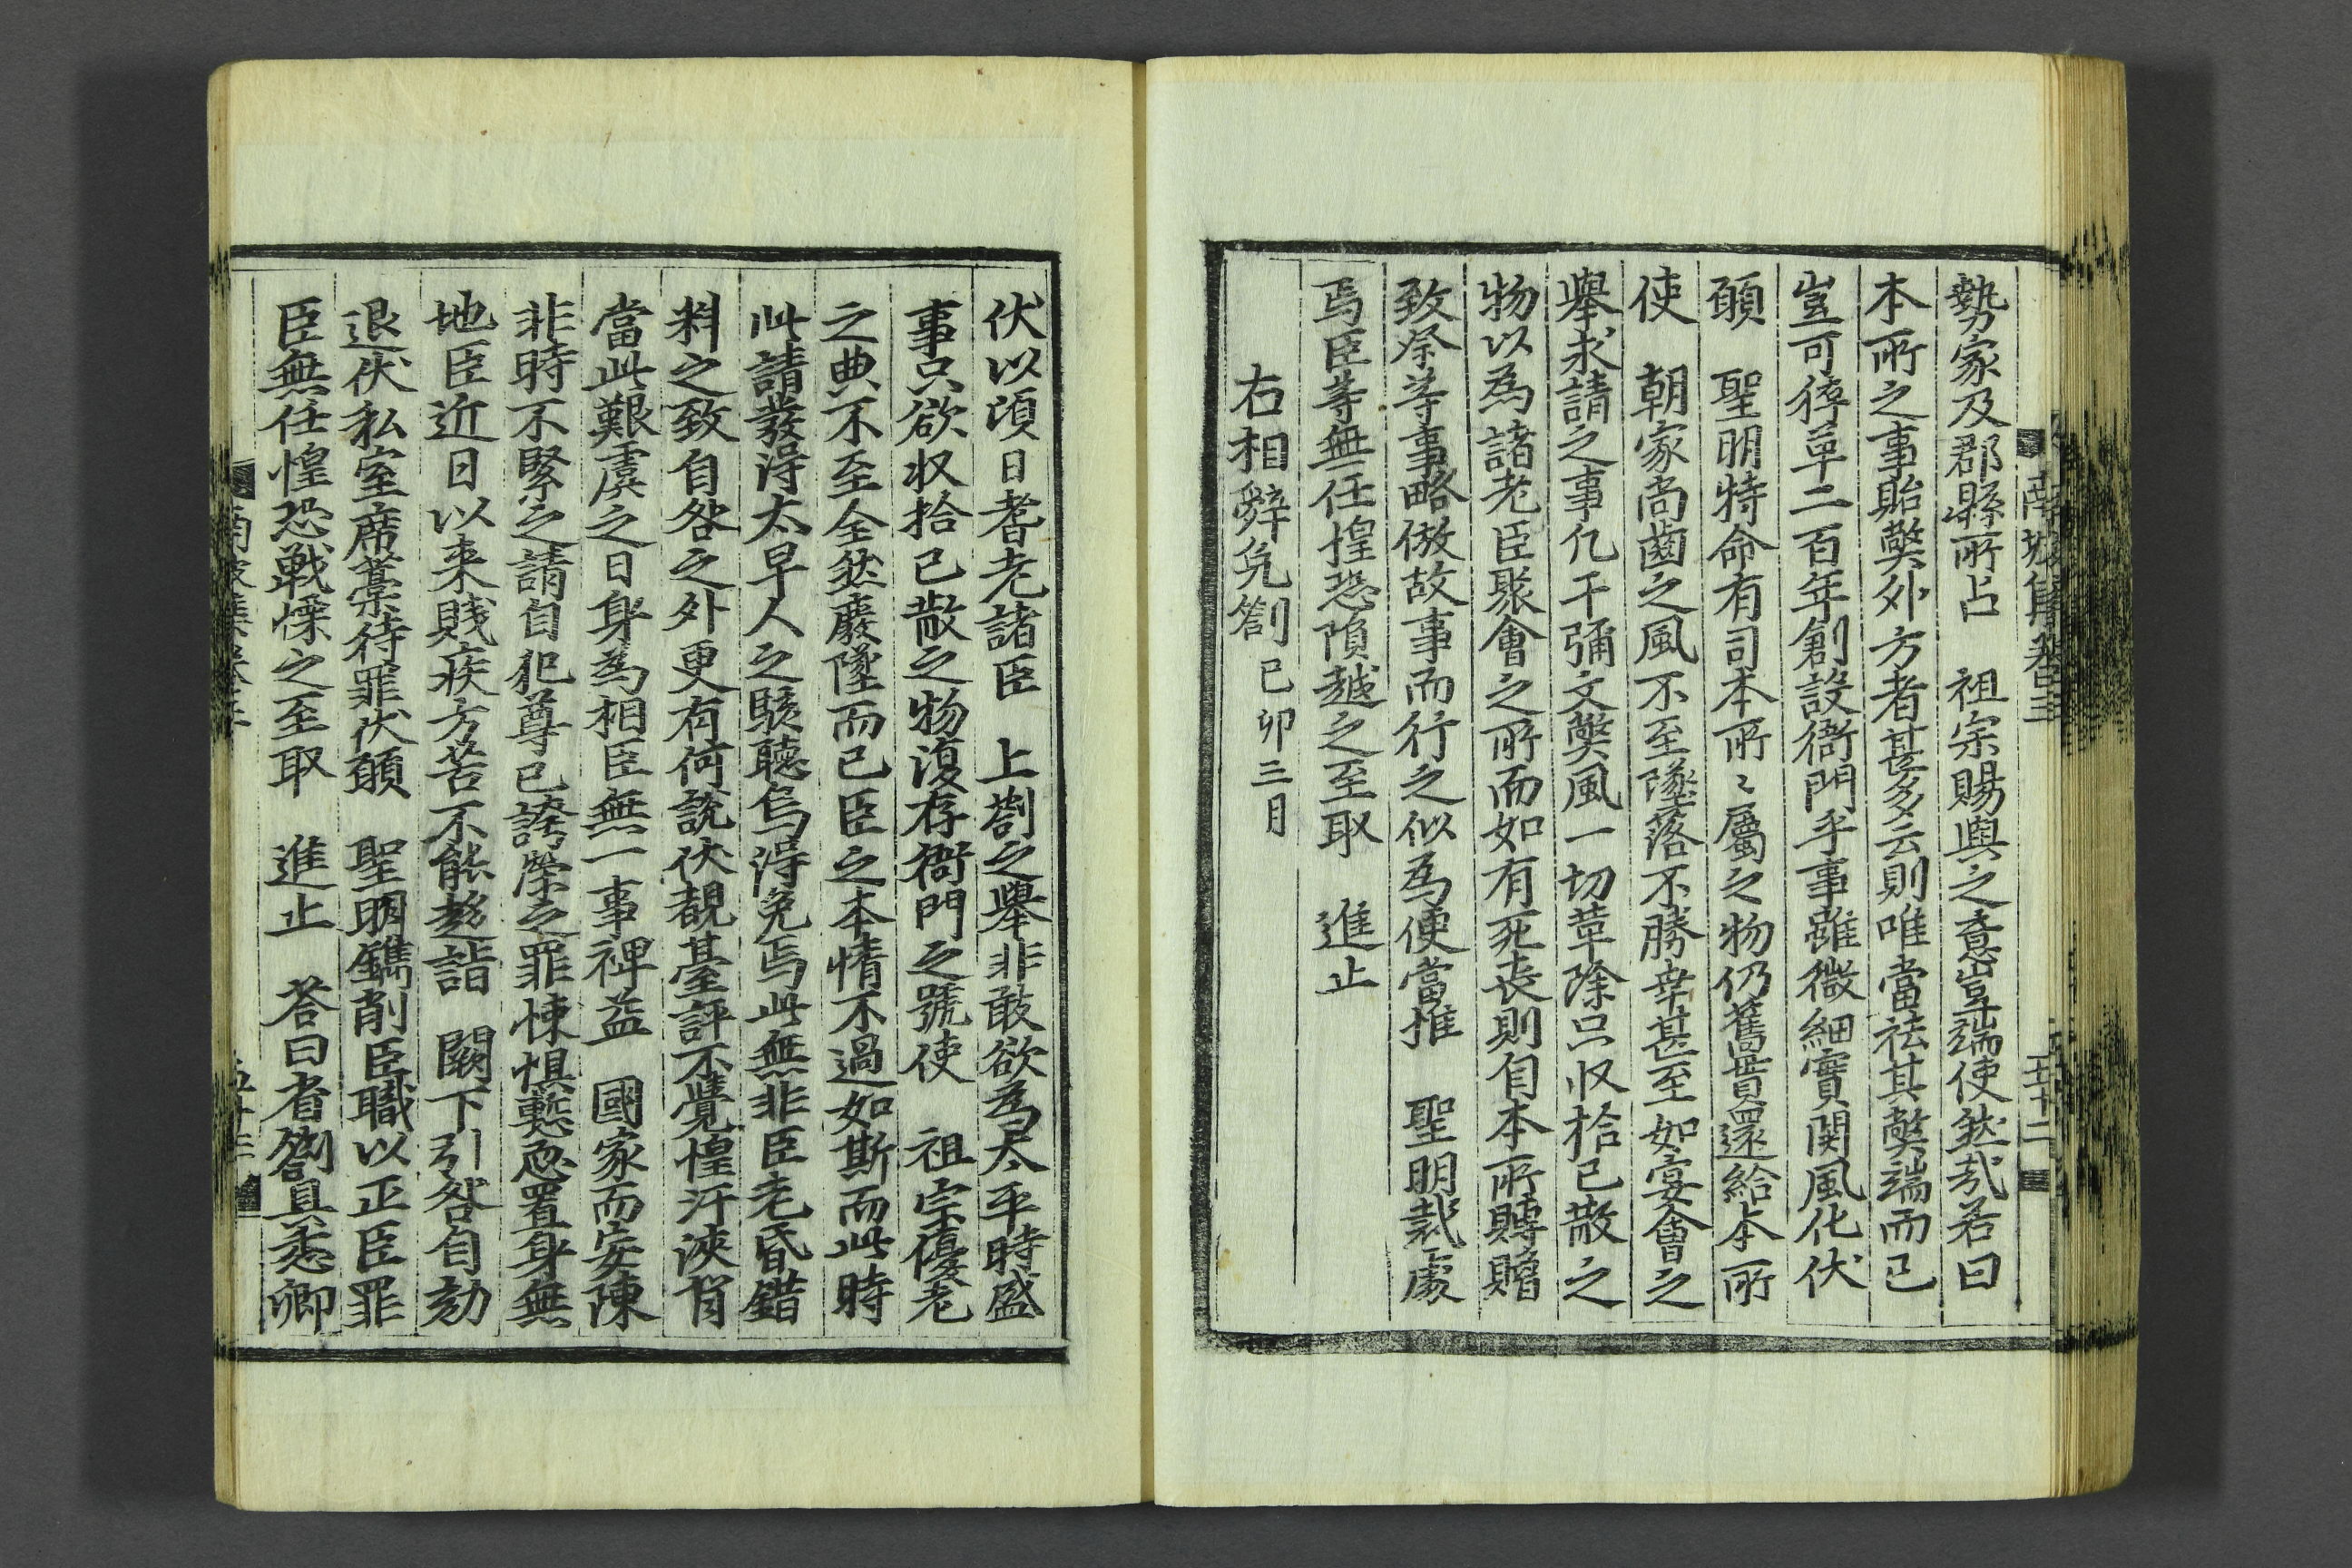 南坡集卷三 五十二
勢家及郡縣所占 祖宗賜與之意豈端使然㢤若曰
本所之事貽獘外方者甚多云則唯當祛其獘端而已
豈可停革二百年創設衙門乎事雖微細實関風化伏
願 聖明特命有司本所〻屬之物仍舊貫還給本所
使 朝家尚齒之風不至墜落不勝幸甚至如宴會之
擧求請之事凢干彌文獘風一切革除只收拾已散之
物以爲諸老臣聚會之所而如有死丧則自本所賻贈
致祭等事略倣故事而行之似爲便當惟 聖明裁處
焉臣等無任惶恐隕越之至取 進止
右相辭免劄 己卯三月
伏以頃日耆老諸臣 上劄之擧非敢欲爲太平時盛
事只欲収拾已散之物復存衙門之號使 祖宗優老
之典不至全然廢墜而已臣之本情不過如斯而此時
此請發淂太早人之駭聽烏淂免焉此無非臣老昏錯
料之致自咎之外更有何說伏覩臺評不覺惶汗浹背
當此艱虞之日身爲相臣無一事裨益 國家而妄陳
非時不緊之請自犯尊己誇榮之罪悚惧慙恧置身無
地臣近日以来賤疾方苦不能趍詣 闕下引咎自劾
退伏私室席藁待罪伏願 聖明鐫削臣職以正臣罪
臣無任惶恐戰慄之至取 進止 答曰省劄具悉卿